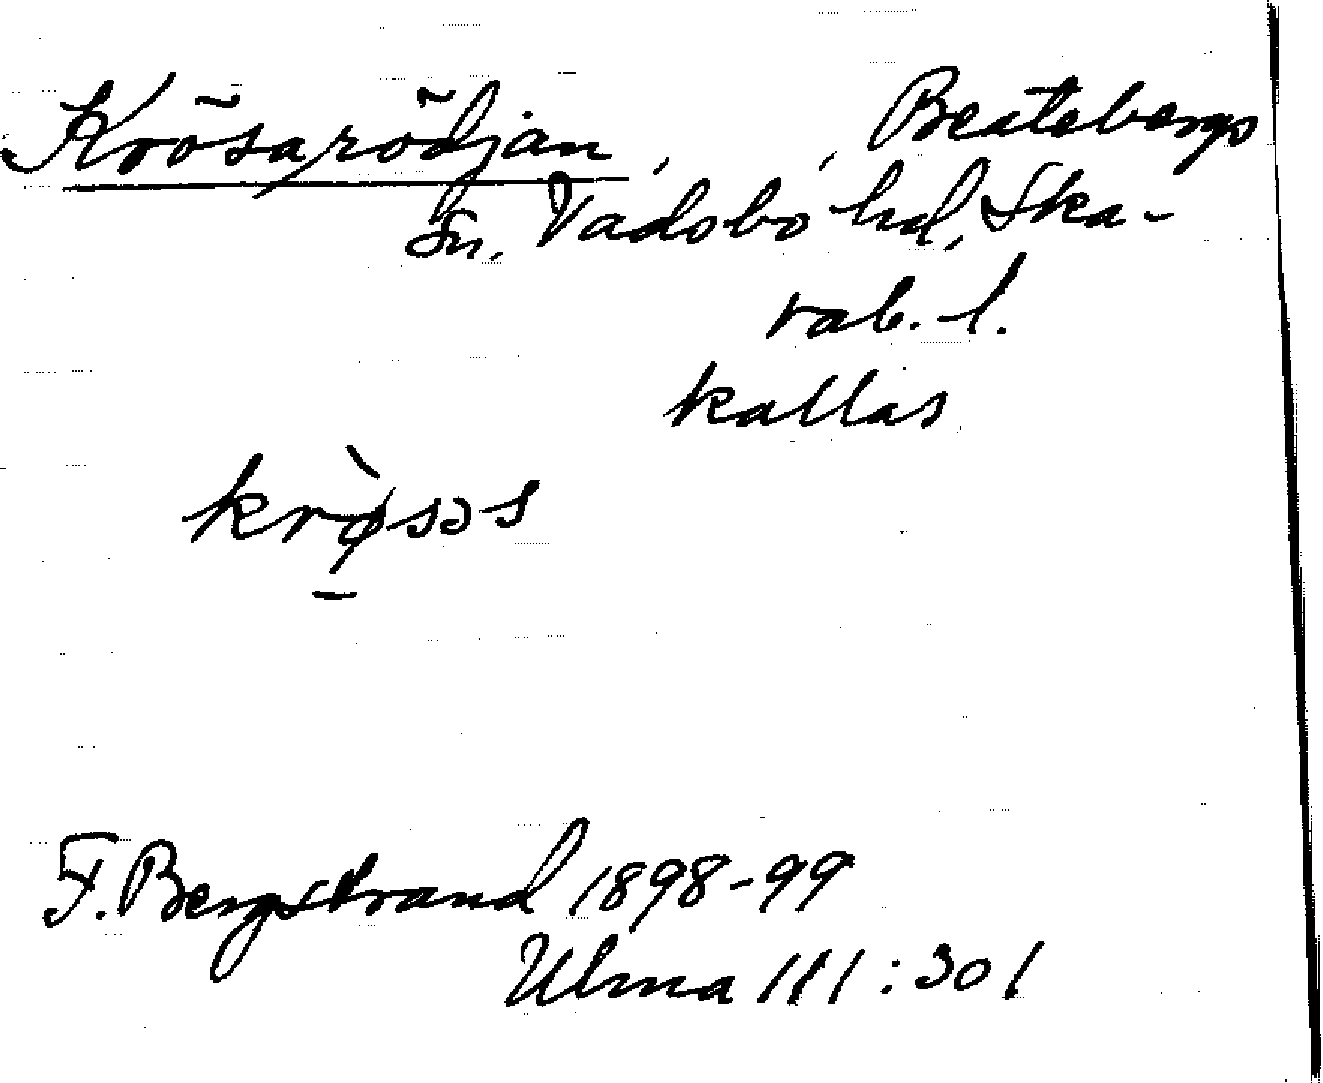 Krösaröjdjan, , Beatebergs
Sn. Vadsbo hd, Ska-
rab. l.
kallas
krø̀sɔs
F. Bergstrand 1898-99
Ulma 111:301